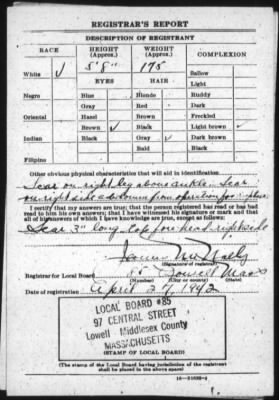 REGISTRAR'S REPORT
DESCRIPTION OF REGISTRANT
RACE HEIGHT (Approx.) WEIGHT (Approx.) COMPLEXION
5' 8" 175 Sallow
White ✓ EYES HAIR Light
Negro Blue Blonde Ruddy
Gray Red Dark
Oriental Hazel Brown Freckled
Brown ✓ Black Light brown ✓
Indian Black Gray ✓ Dark brown
Bald Black
Filipino
Other obvious physical characteristics that will aid in identification
Scar on right leg above ankle. Scar
on right side abdomen from operation for
I certify that my answers are true; that the person registered has read or has had
read to him his own answers; that I have witnessed his signature or mark and that
all of his answers of which I have knowledge are true, except as follows:
Scar 3" long top forehead right side
(Signature of registrar)
Registrar for Local Board 85 Lowell Mass
(Number) (City or county) (State)
Date of registration April 27, 1942
LOCAL BOARD #85
97 CENTRAL STREET
Lowell Middlesex County
MASSACHUSETTS
(STAMP OF LOCAL BOARD)
(The stamp of the Local Board having jurisdiction of the registrant
shall be placed in the above space)